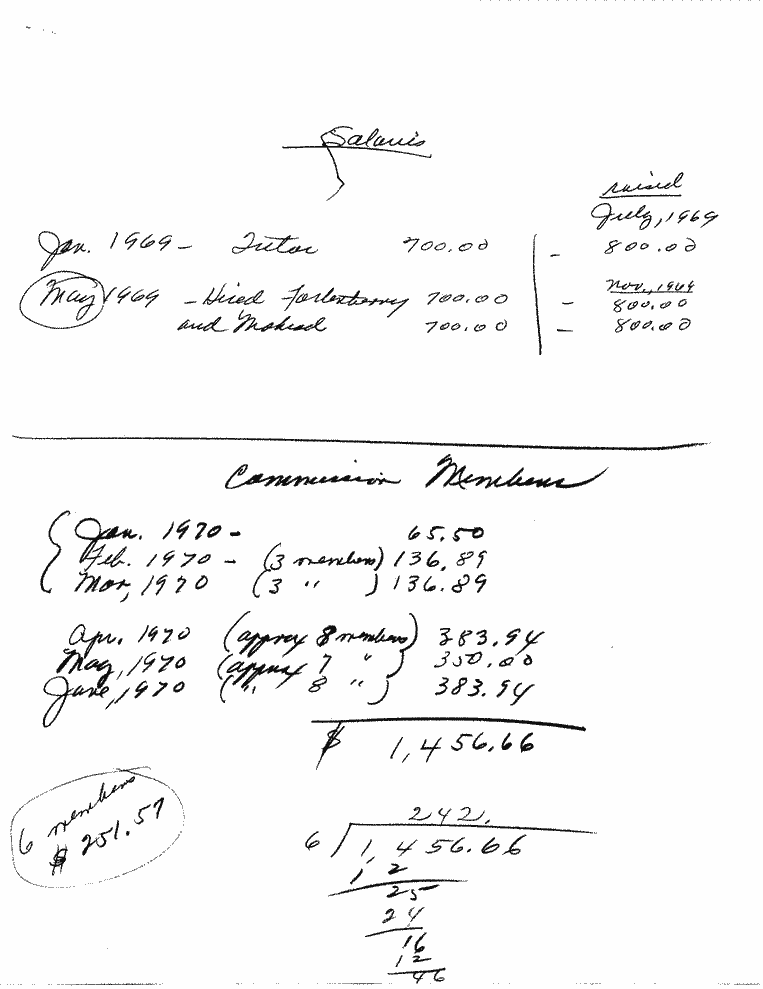 Salaries
raised
July, 1969
Jan. 1969 - Tutor 700.00 - 800.00
Nov., 1969
May 1969 - Hired 700.00 - 800.00
and 700.00 - 800.00
Commission Members
Jan. 1970 - 65.50
Feb. 1970 - (3 members) 136.89
Mar, 1970 (3 ") 136.89
Apr. 1970 (approx 8 members) 383.94
May, 1970 (approx 7 ") 350.00
June, 1970 (" 8 ") 383.94
$ 1,456.66
6 members
$ 251.57
242.
6 1,456.66
1 2
25
24
16
12
46